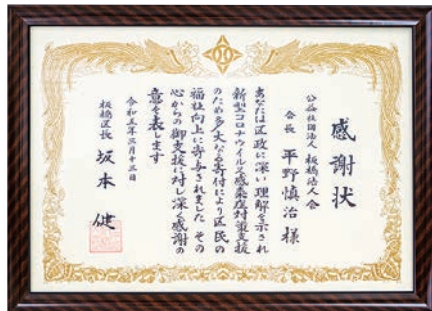 感謝状
公益社団法人 板橋法人会
会長 平野慎治様
あなたは区政に深い理解を示され
新型コロナウイルス感染症対策支援
のため多大なる寄付により区民の
福祉向上に寄与されました その
心からの御支援に対し深く感謝の
意を表します
令和五年三月十三日
板橋区長 坂本 健